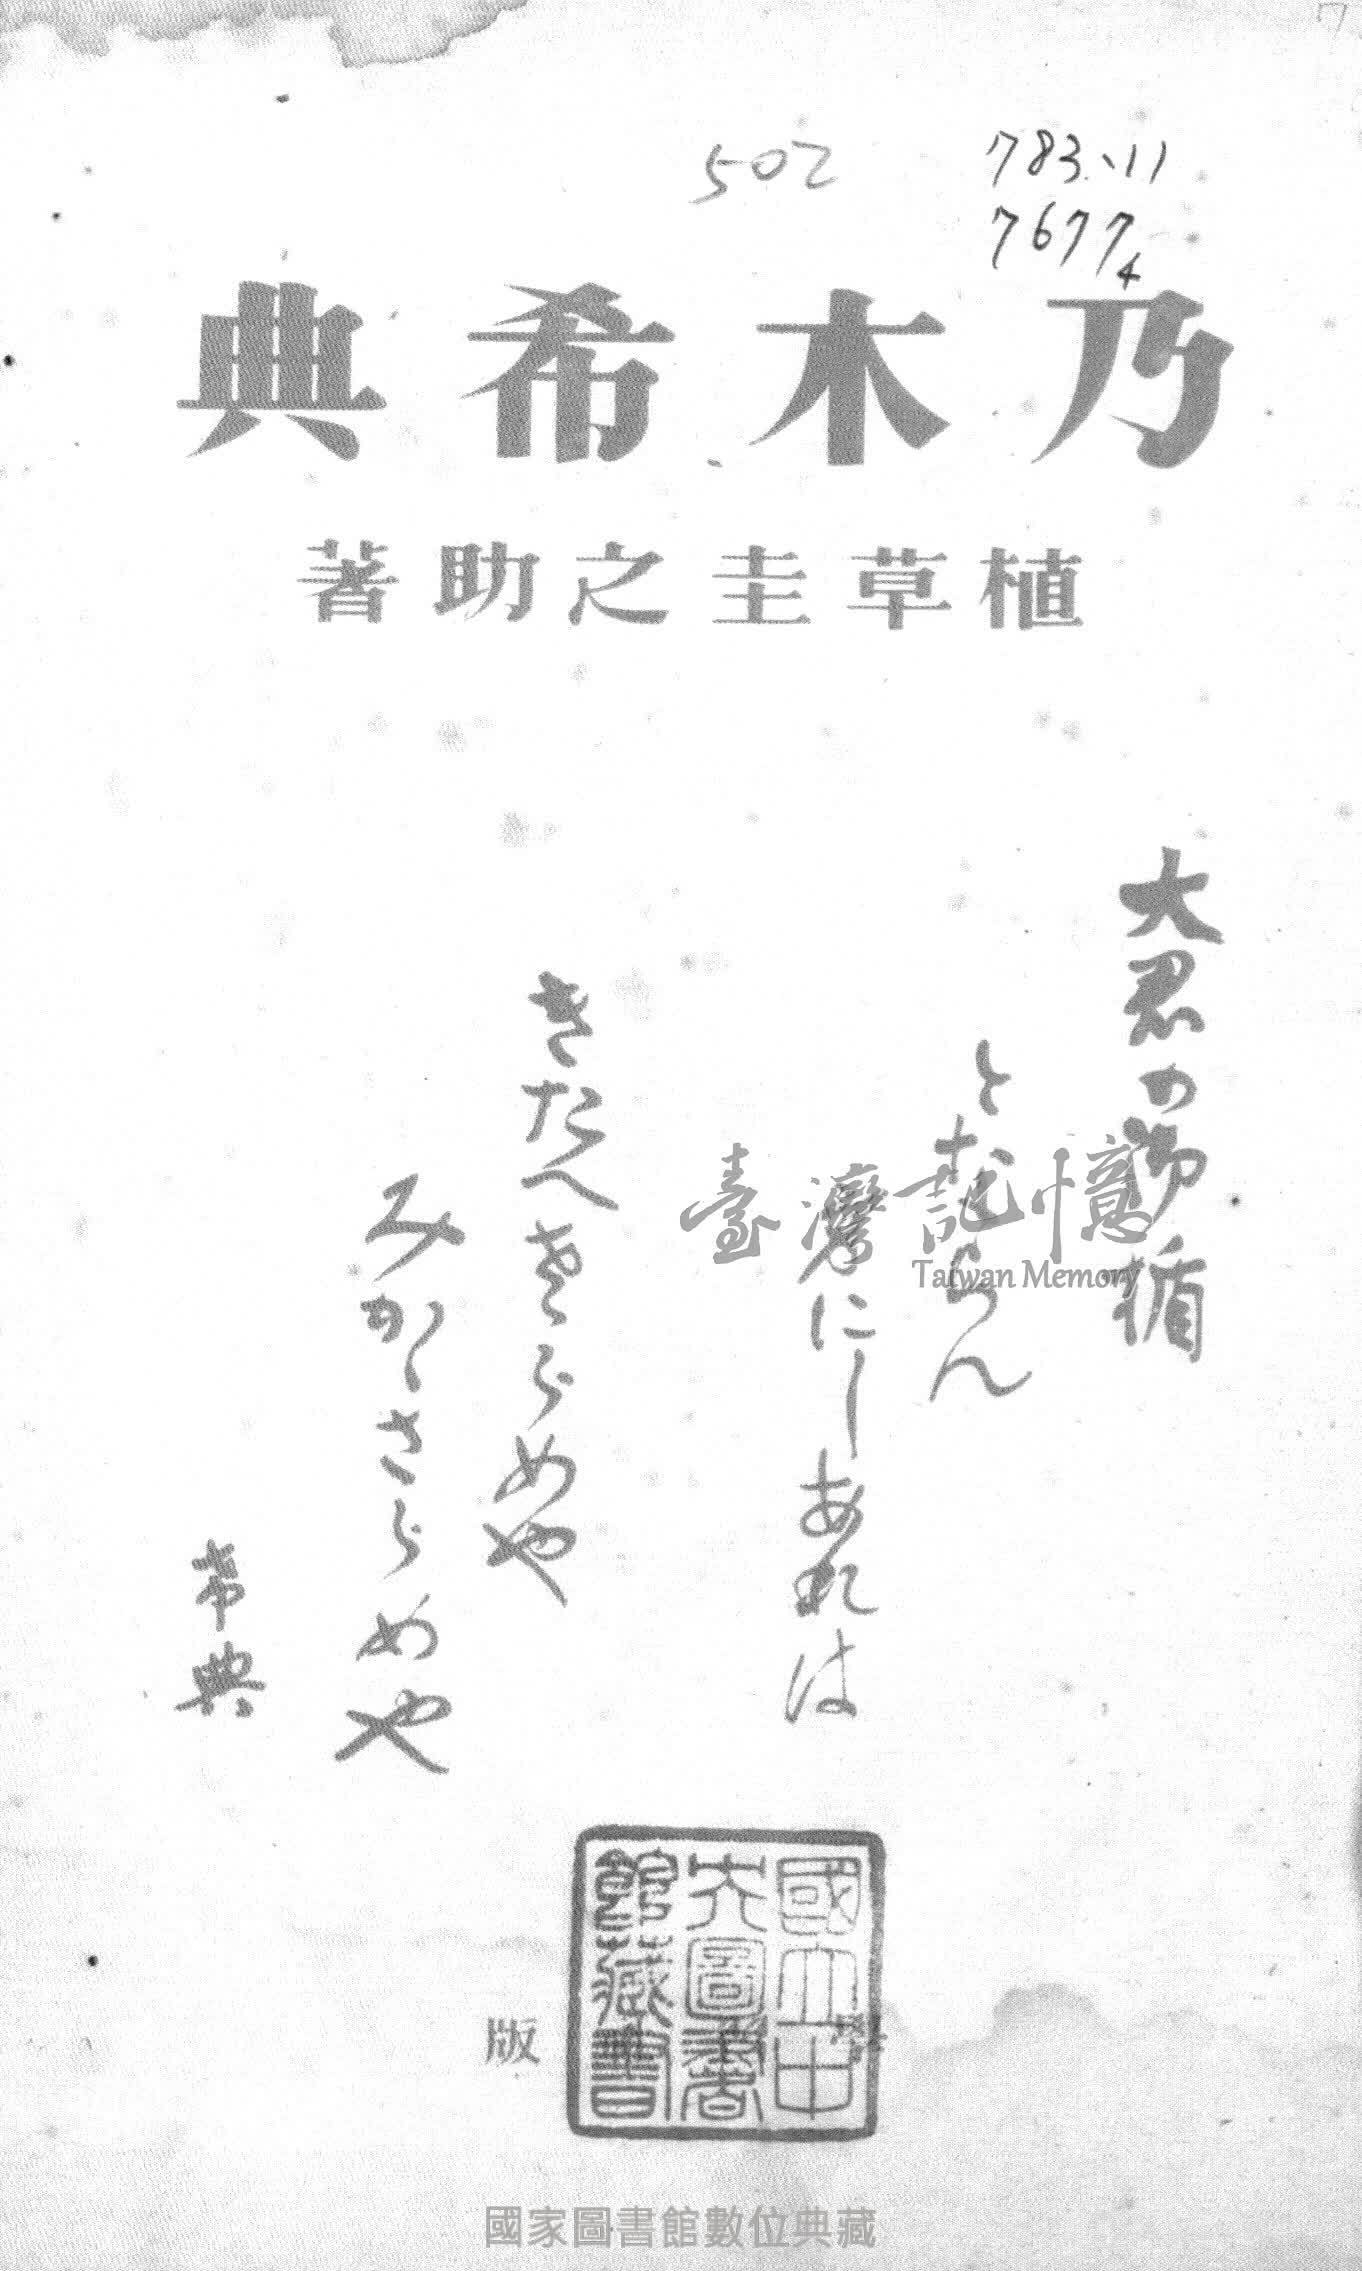 502
783.11
7677
4
乃木希典
植草圭之助著
大君の御楯
とならん
身にしあれは
きたへさらめや
みかゝさらめや
希典
國立中
央圖書
館藏書
版
臺灣記憶
Taiwan Memory
國家圖書館數位典藏